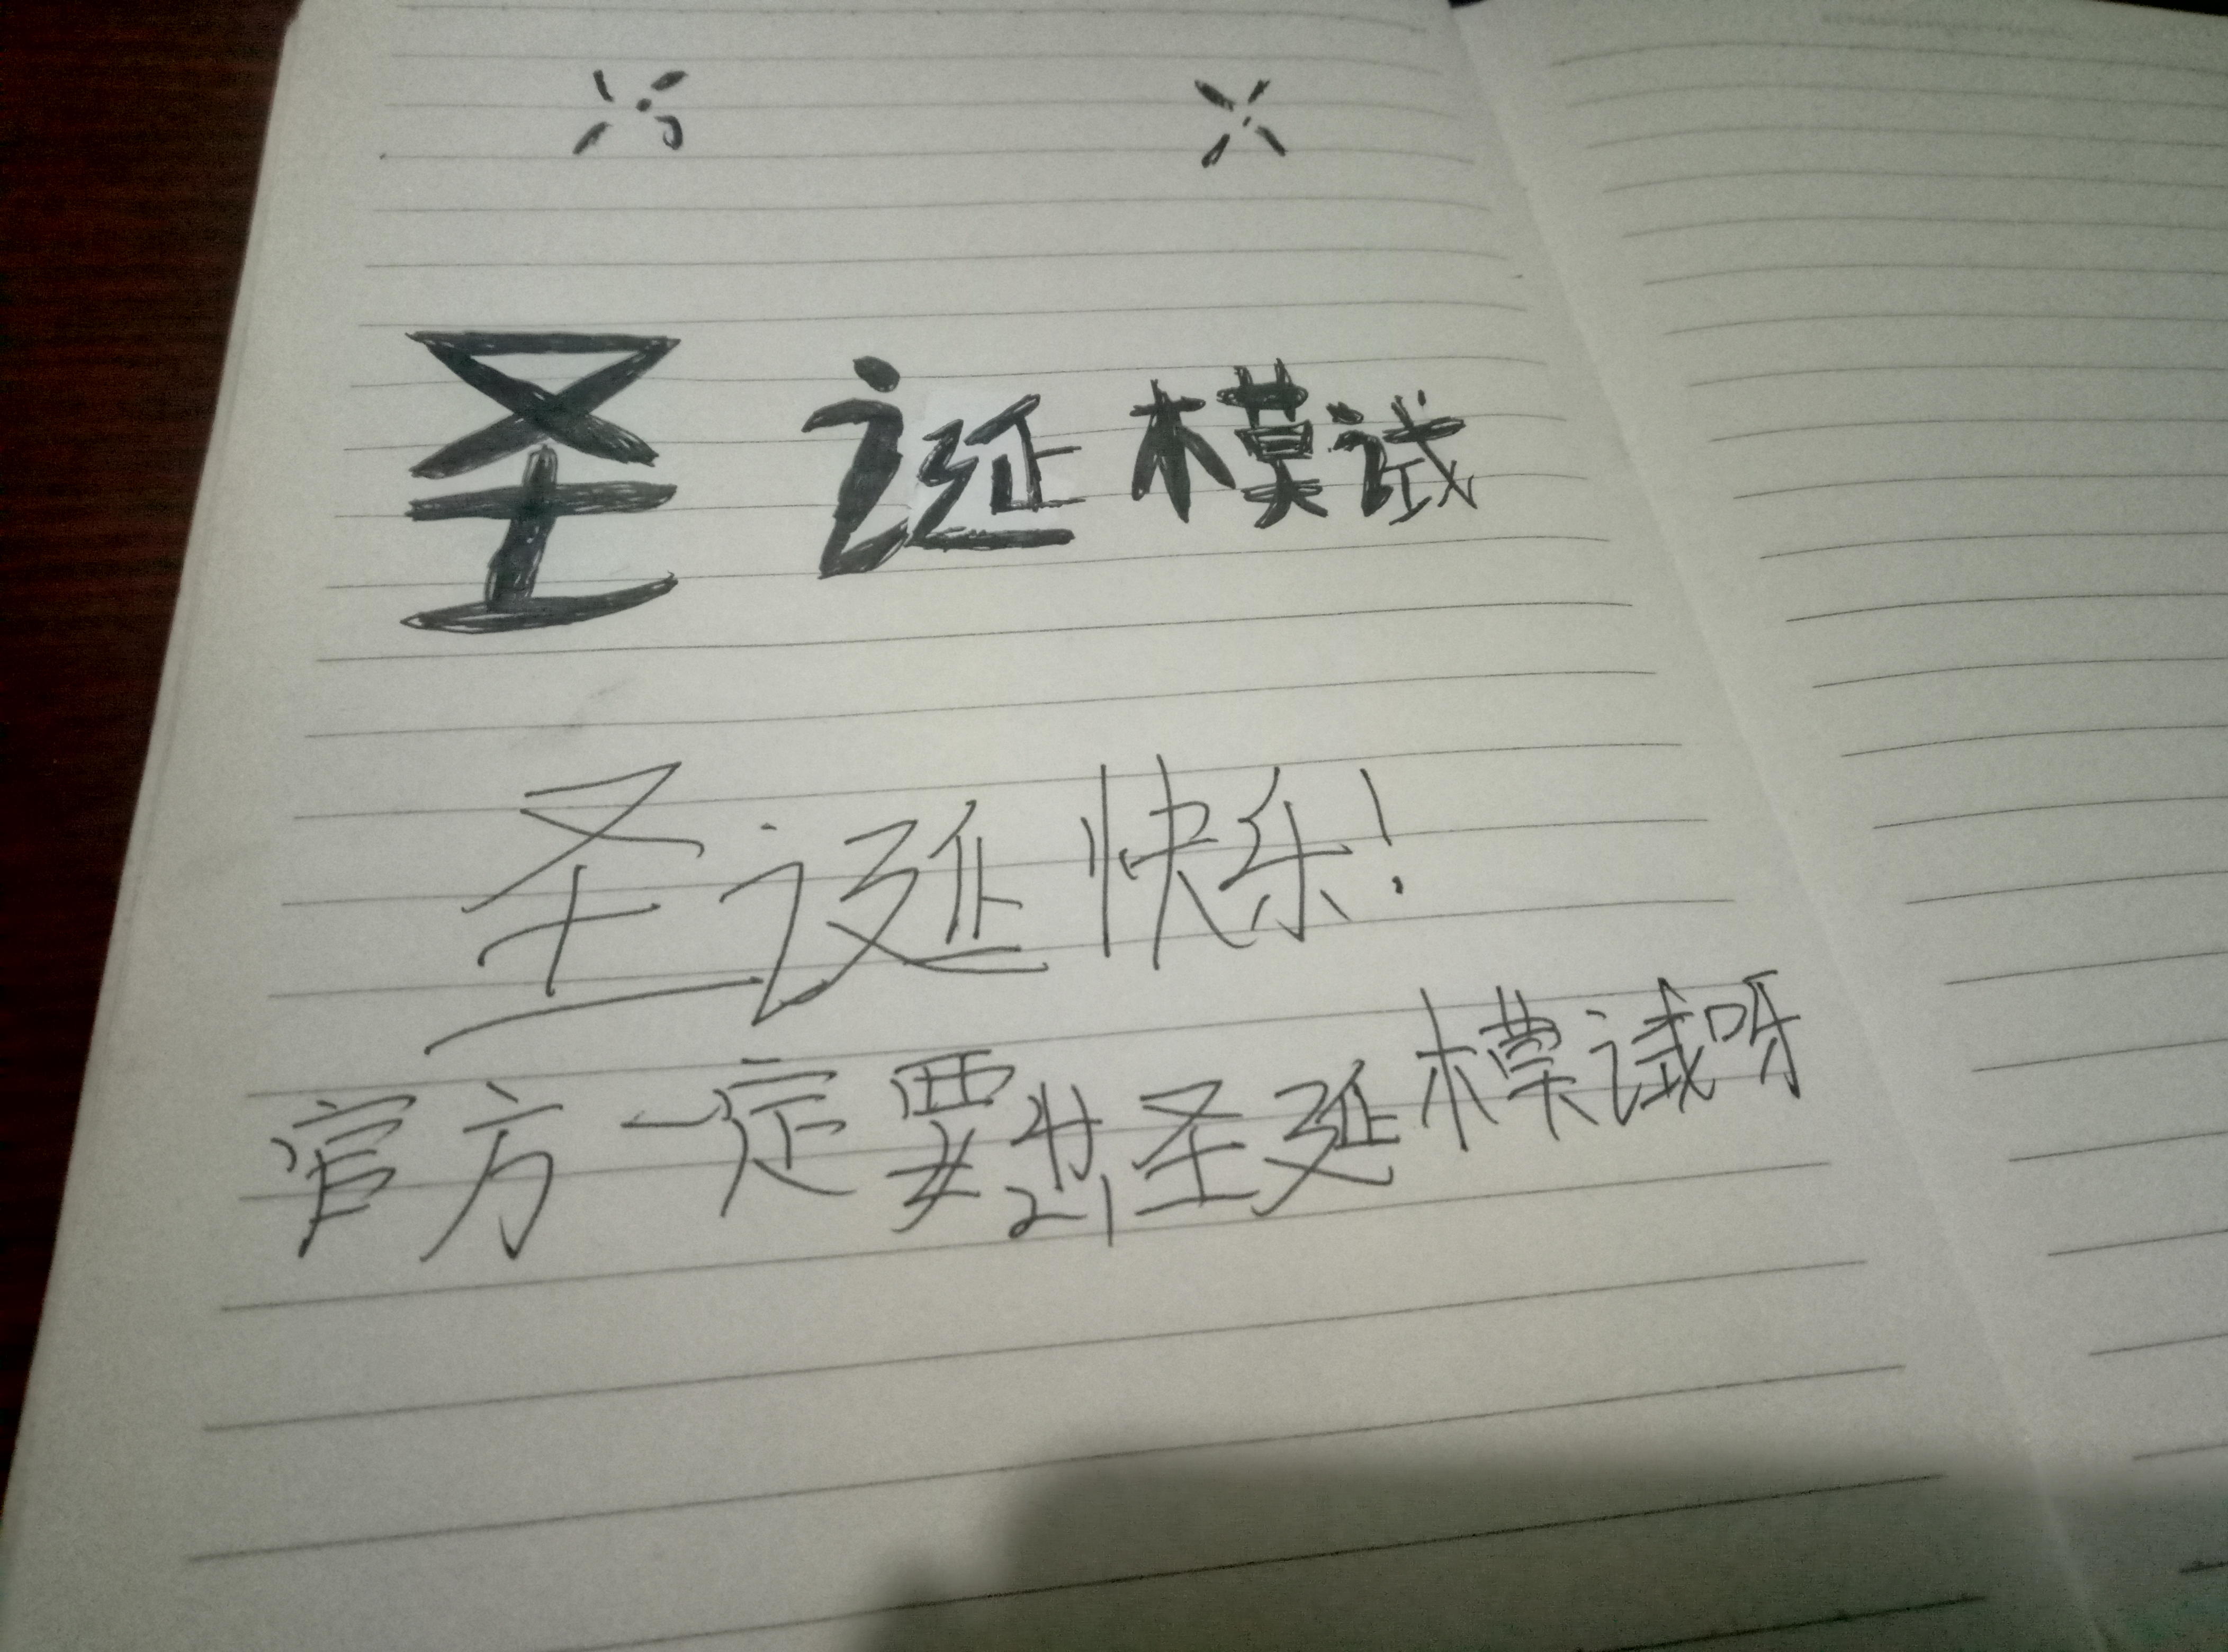 圣诞模试
圣诞快乐!
官方一定要出圣延模试呀